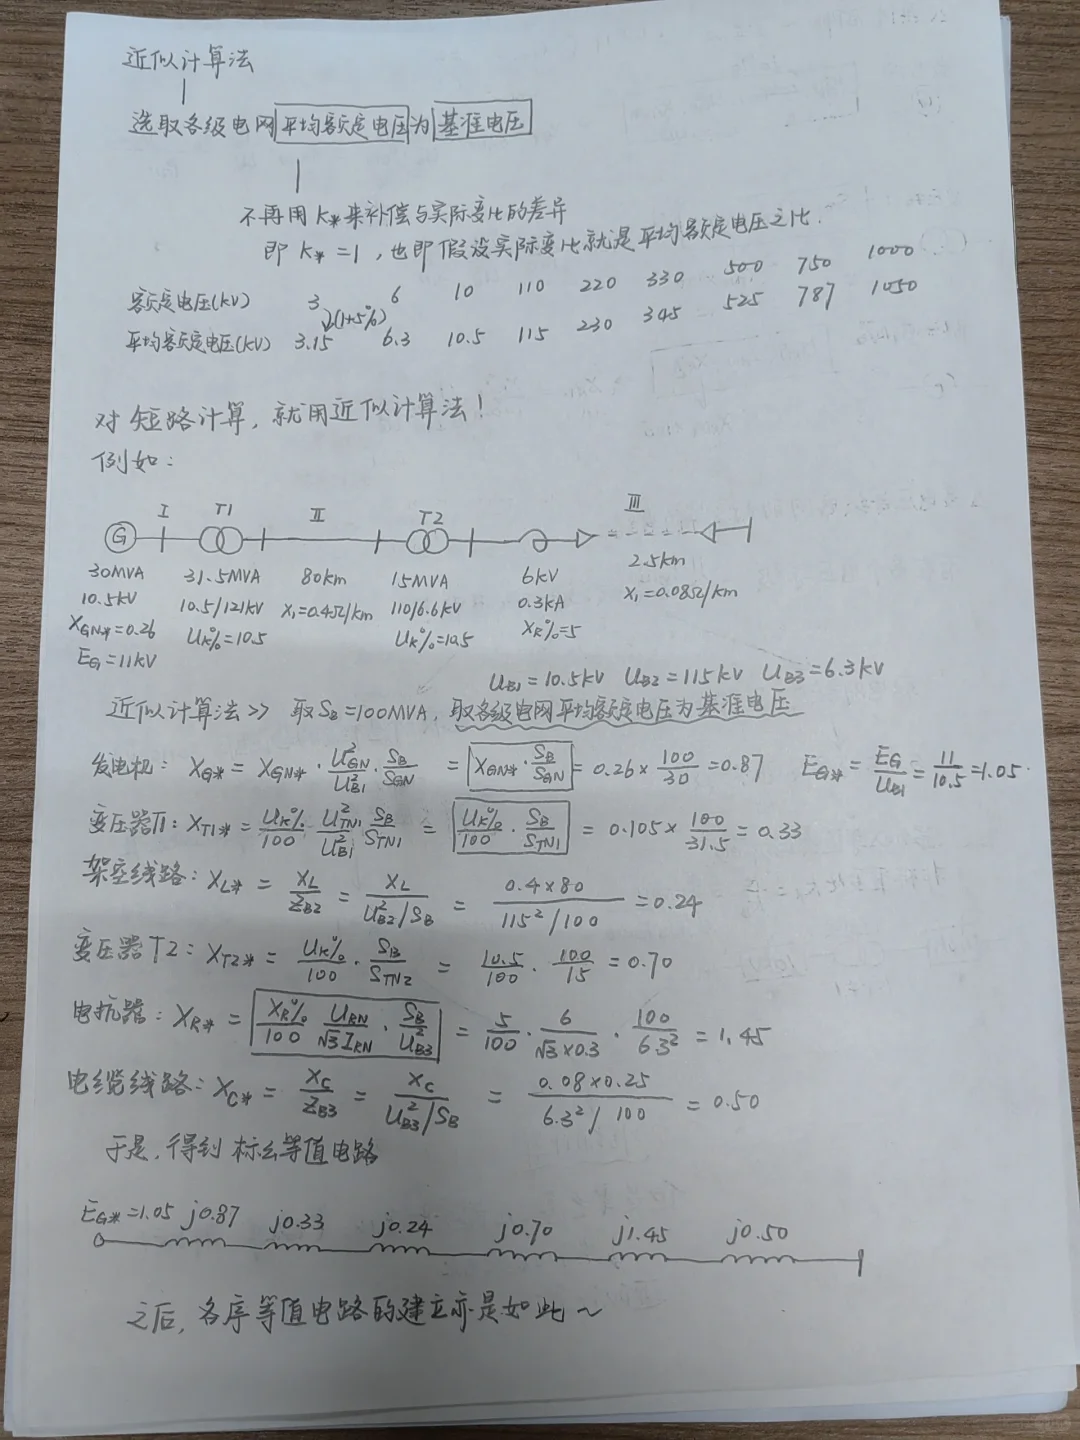 近似计算法
选取各级电网平均额定电压为基准电压
不再用K*来补偿与实际变比的差异
即K*=1,也即假设实际变比就是平均额定电压之比.
额定电压(kV) 3 6 10 110 220 330 500 750 1000
2(1+5%)
平均额定电压(kV) 3.15 6.3 10.5 115 230 345 525 787 1050
对短路计算,就用近似计算法!
例如:
I T1 II T2 III
G
30MVA 31.5MVA 80km 15MVA 6kV 2.5km
10.5kV 10.5/121kV X₁=0.4Ω/km 110/6.6kV 0.3kA X₁=0.08Ω/km
XGN*=0.26 UK%=10.5 UK%=10.5 XR%=5
EG=11kV
UB1=10.5kV UB2=115kV UB3=6.3kV
近似计算法>> 取SB=100MVA,取各级电网平均额定电压为基准电压
发电机: XG* = XGN*·U²GN/U²B1·SB/SGN = XGN*·SB/SGN = 0.26×100/30=0.87 EG*=EG/UB1=11/10.5=1.05.
变压器T1: XT1* = UK%/100 U²TN1/U²B1 SB/STN1 = UK%/100·SB/STN1 = 0.105×100/31.5=0.33
架空线路: XL* = XL/ZB2 = XL/(U²B2/SB) = 0.4×80/(115²/100) =0.24
变压器T2: XT2* = UK%/100·SB/STN2 = 10.5/100·100/15=0.70
电抗器: XR* = XR%/100 URN/√3IRN·SB/U²B3 = 5/100·6/√3×0.3·100/6.3²=1.45
电缆线路: XC* = XC/ZB3 = XC/(U²B3/SB) = 0.08×0.25/(6.3²/100) =0.50
于是,得到标幺等值电路
EG*=1.05 j0.87 j0.33 j0.24 j0.70 j1.45 j0.50
之后,各序等值电路的建立亦是如此~